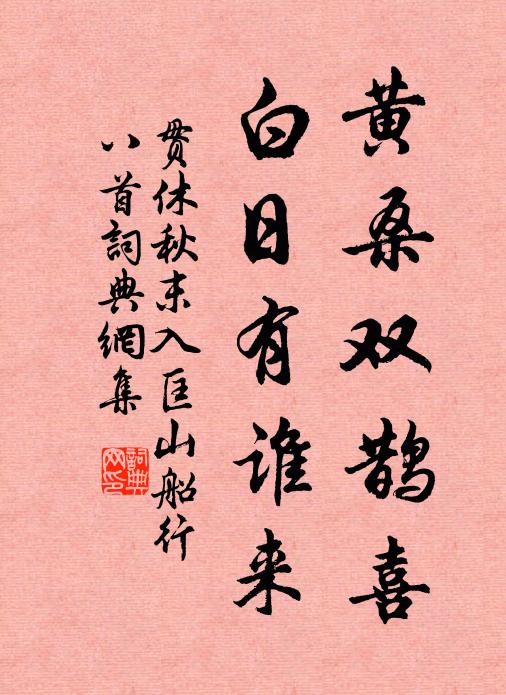 黄桑双鹊喜
白日有谁来
贯休秋末入匡山船行
八首詞典網集
詞典網印